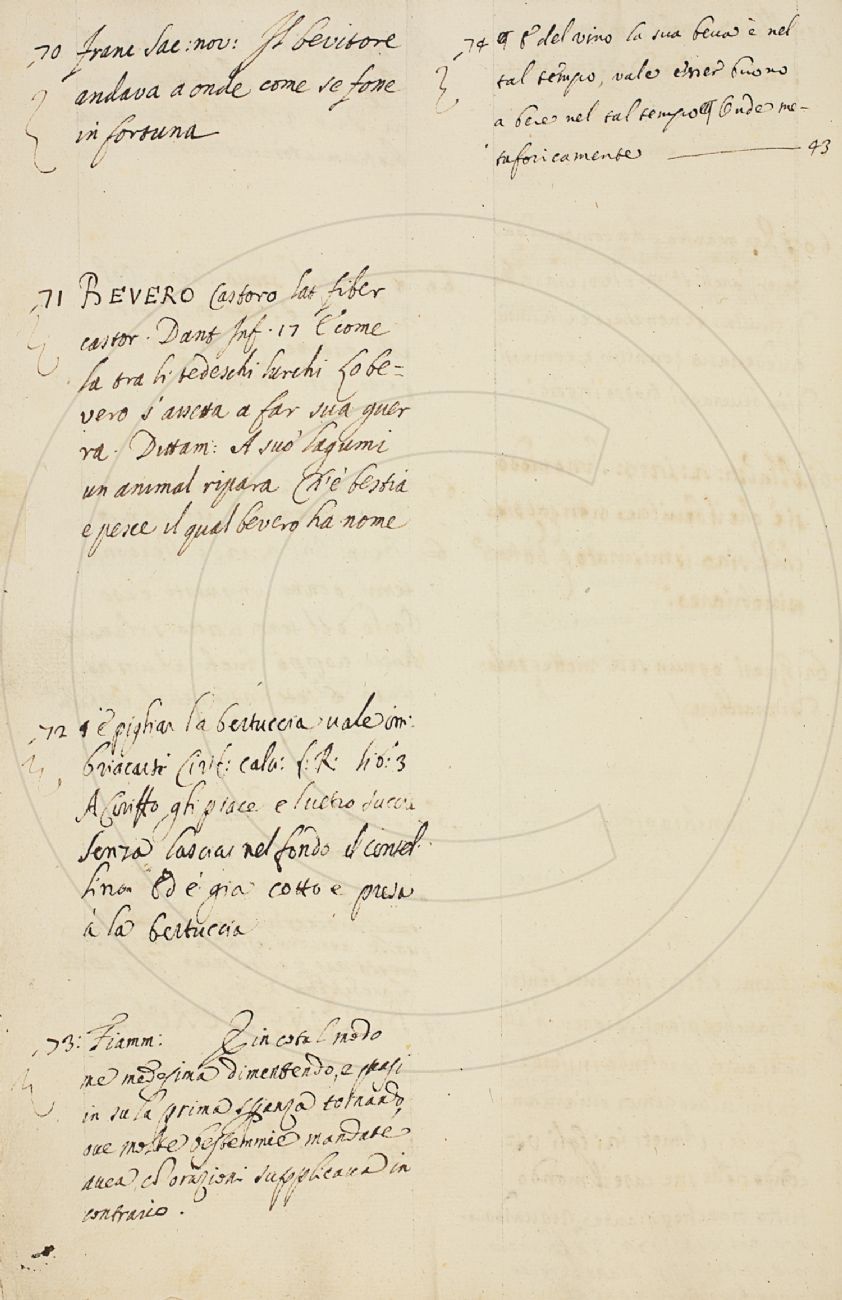 70 Franc Sac: nov: Il bevitore
andava a onde come se fosse
in fortuna
71 BEVERO Castoro lat fiber
castor. Dant Inf. 17 E come
la tra li tedeschi lurchi Lo be=
vero s'assetta a far sua guer
ra. Dittam: A suo lagumi
un animal ripara Ch'è bestia
e pesce il qual bevero ha nome
72 ¶ E pigliar la bertuccia vale im:
briacarsi Ciriff: calv: l: R: lib: 3
A Ciriffo gli piace e l vetro succia
Senza lasciar nel fondo il centel
lino Ed è già cotto e presa
à la bertuccia
73: Fiamm: E in cotal modo
me medesima dimentendo, e quasi
in su la prima speranza tornando,
ove molte bestemmie mandate
avea, cō orazioni supplicava in
contrario.
74 ¶ E del vino la sua beva è nel
tal tempo, vale esser buono
a bere nel tal tempo ¶ Onde me-
taforicamente 43